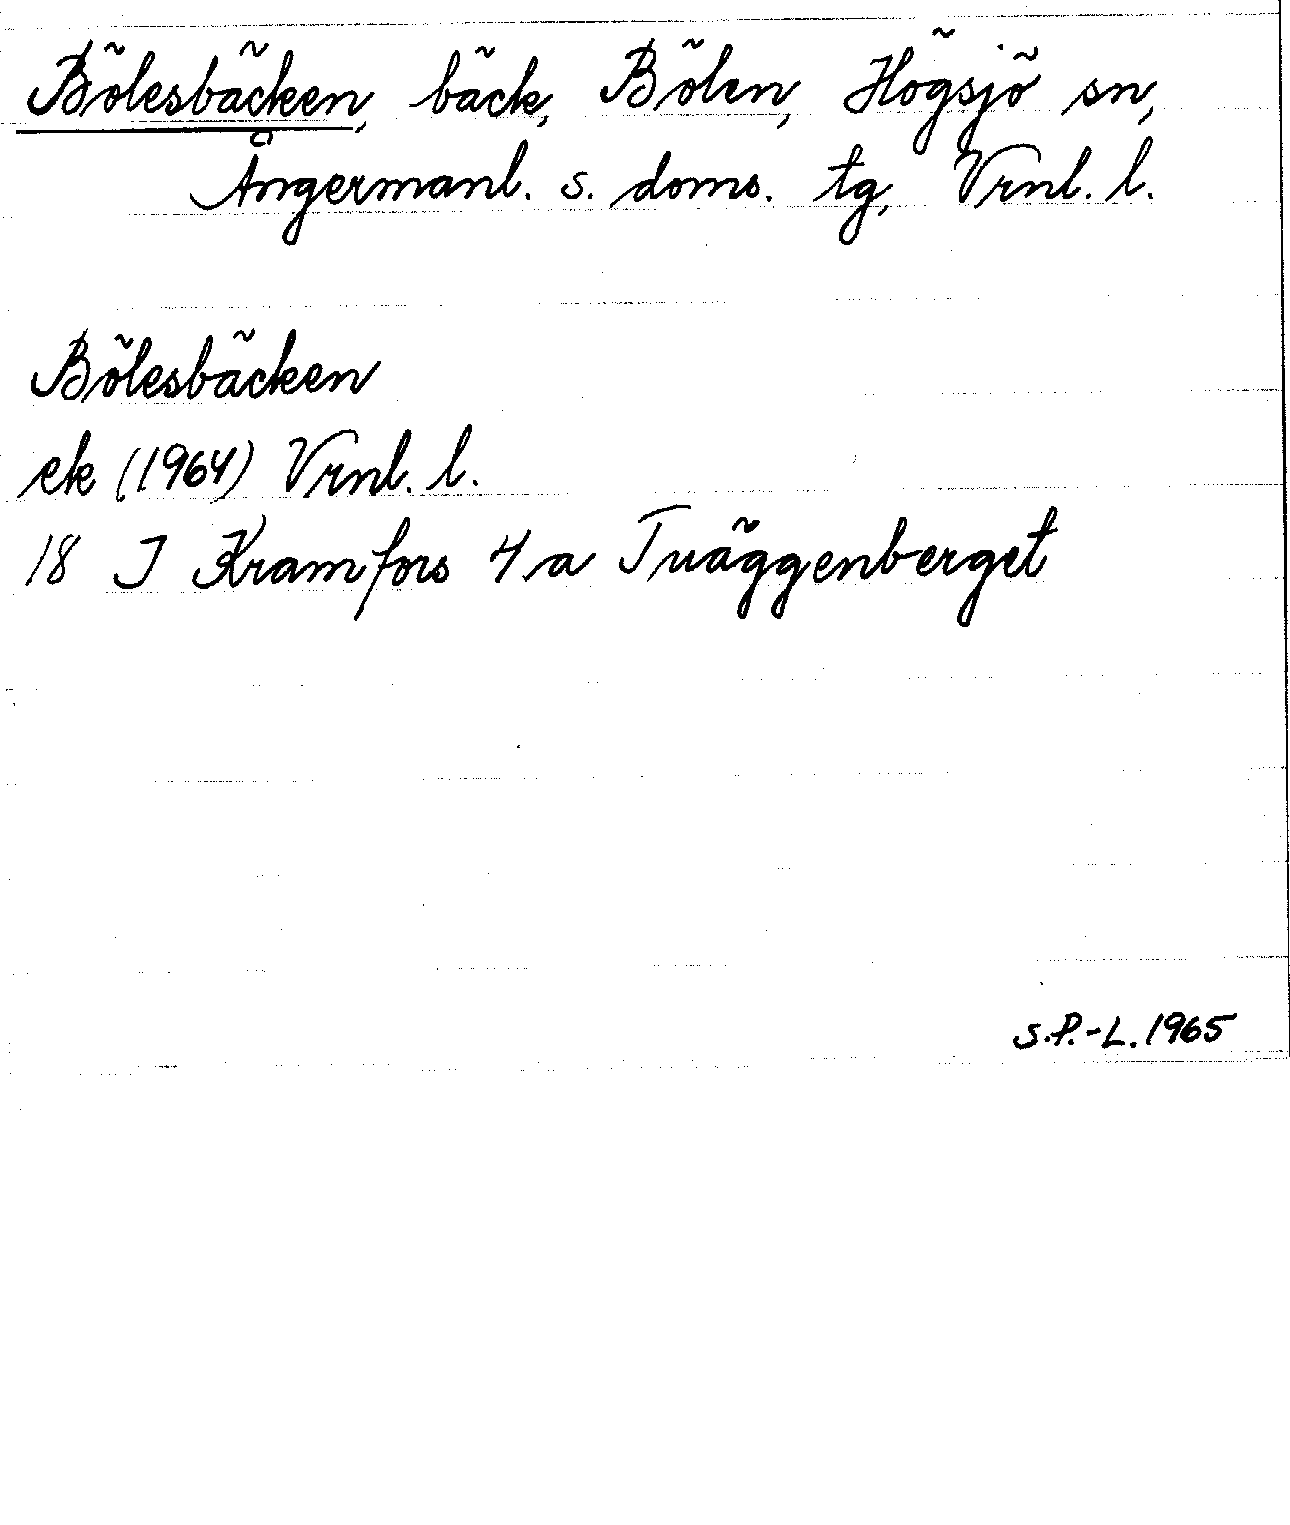 Bölesbäcken, bäck, Bölen, Högsjö sn,
Ångermanl. s. doms. tg, Vrnl. l.
Bölesbäcken
ek (1964) Vrnl. l.
18 I Kramfors 4 a Tväggenberget
S.P.-L. 1965